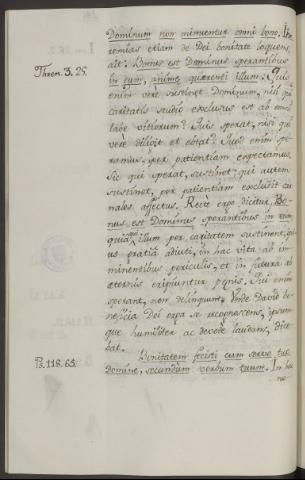 Dominum non minuentur omni bono. Je-
remias etiam de Dei bonitate loquens,
Thren. 3. 25.
ait: Bonus est Dominus sperantibus
in eum, animæ quærenti illum. Quis
enim vere sustinet Dominum, nisi qui
caritatis studio exclusus est ab omni
labe vitiorum? Quis sperat, nisi qui
vere diligit et optat? Quod enim spe-
ramus, per patientiam expectamus.
Sic qui sperat, sustinet; qui autem
sustinet, per patientiam excludit car-
nales affectus. Recte ergo dicitur, Bo-
nus est Dominus sperantibus in eum,
quia illum per caritatem sustinent,
gratia adiuti, in hac vita ab im-
minentibus periculis, et in futura ab
æternis eripiuntur pœnis. Qui enim
sperant, non delinquunt. Unde David be-
neficia Dei erga se recognoscens, ipsum-
que humiliter ac devote laudans, dice-
bat.
Ps. 118. 65.
Bonitatem fecisti cum servo tuo
Domine, secundum verbum tuum. In hac